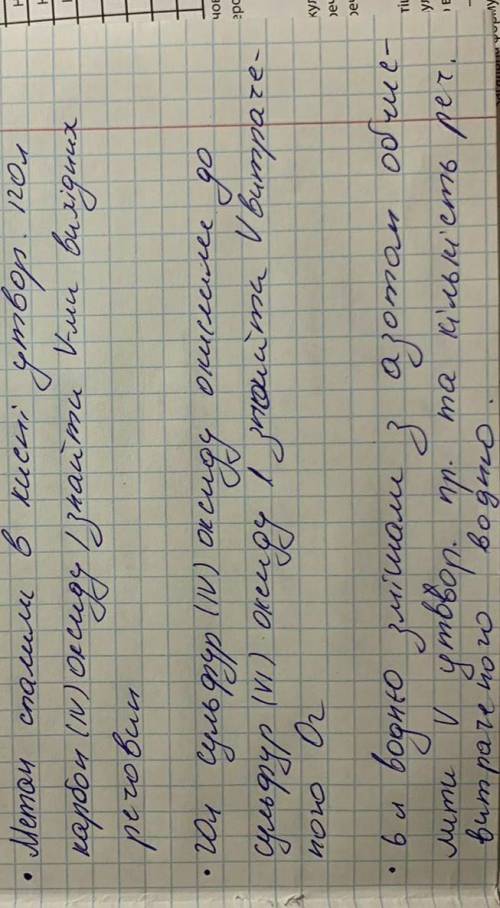 • Метан спалили в кисні утвор. 120л
карбон (IV) оксиду, знайти V-ми вихідних
речовин
• 20л сульфур (IV) оксиду окислили до
сульфур (VI) оксиду, знайти V витраче-
ного O2
• 6 л водню змішали з азотом обчис-
лити V утввор. пр. та кількість реч.
витраченого водню.